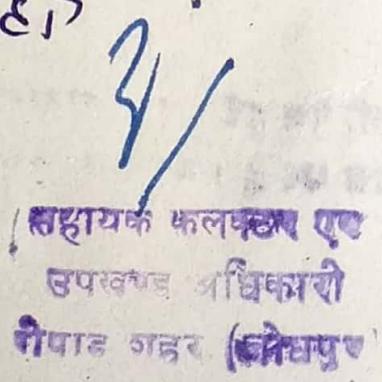 सहायक कलक्टर एवं
उपखण्ड अधिकारी
पीपाड शहर (जोधपुर